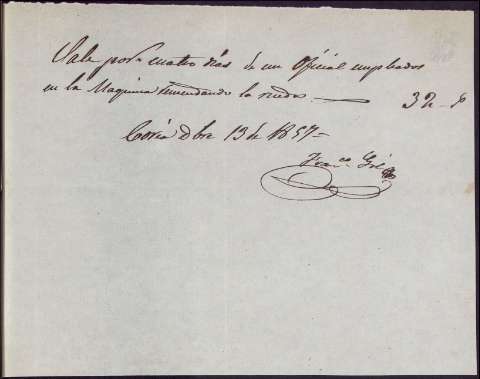 Vale por cuatro dias de un Oficial empleados
en la Maquina remendando la rueda — 32 -
Coria Dbre 13 de 1857 =
Franco. Gil